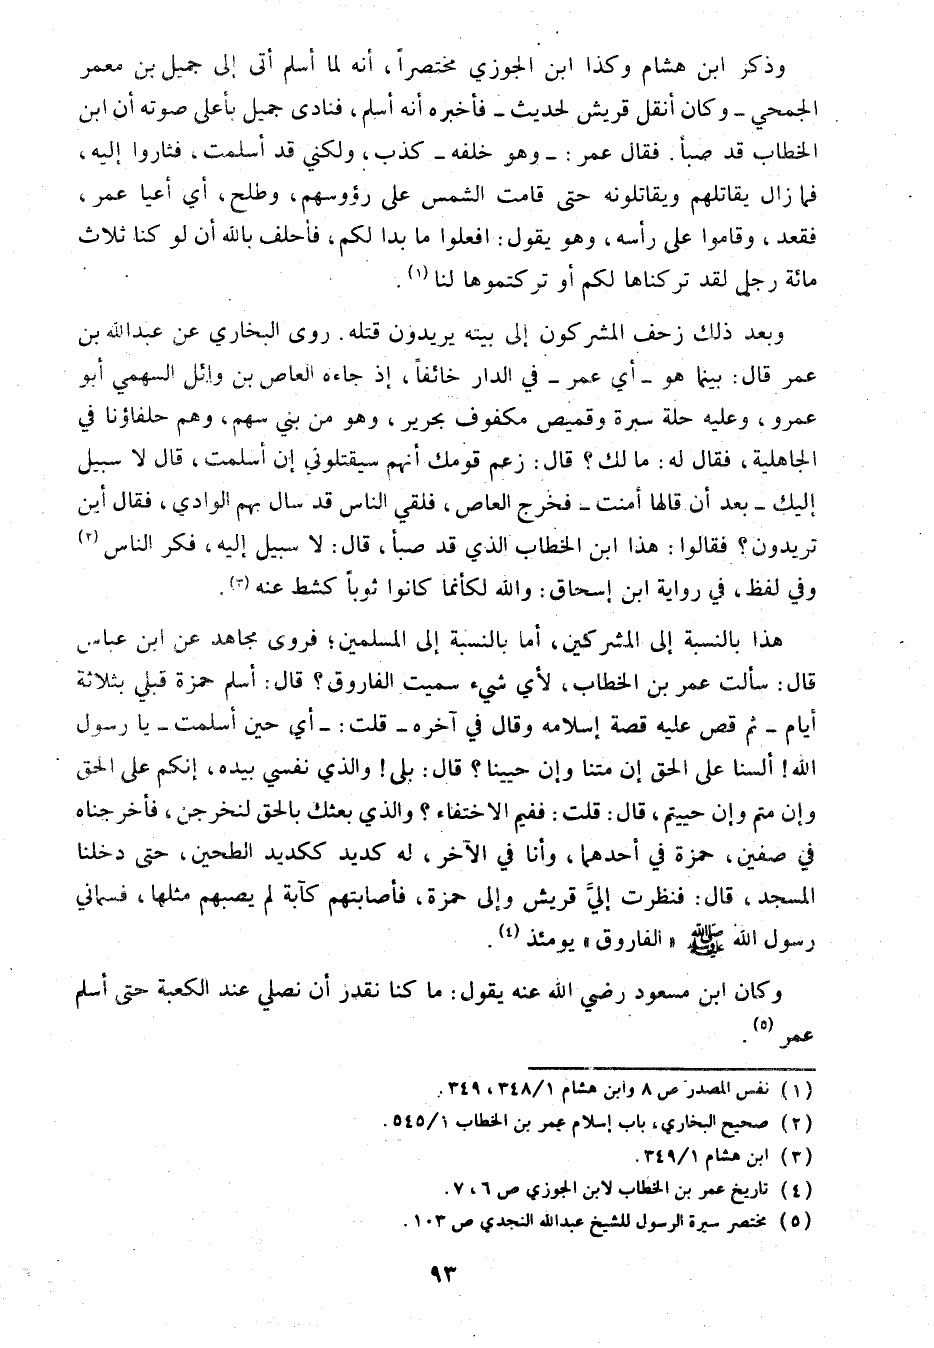 وذكر ابن هشام وكذا ابن الجوزي مختصراً، أنه لما أسلم أتى إلى جميل بن معمر
الجمحي ـ وكان أنقل قريش لحديث ـ فأخبره أنه أسلم، فنادى جميل بأعلى صوته أن ابن
الخطاب قد صبأ. فقال عمر: ـ وهو خلفه ـ كذب، ولكني قد أسلمت، فثاروا إليه،
فما زال يقاتلهم ويقاتلونه حتى قامت الشمس على رؤوسهم، وطلح، أي أعيا عمر،
فقعد، وقاموا على رأسه، وهو يقول: افعلوا ما بدا لكم، فأحلف بالله أن لو كنا ثلاث
مائة رجل لقد تركناها لكم أو تركتموها لنا (١).
وبعد ذلك زحف المشركون إلى بيته يريدون قتله. روى البخاري عن عبدالله بن
عمر قال: بينما هو ـ أي عمر ـ في الدار خائفاً، إذ جاءه العاص بن وائل السهمي أبو
عمرو، وعليه حلة سبرة وقميص مكفوف بحرير، وهو من بني سهم، وهم حلفاؤنا في
الجاهلية، فقال له: ما لك؟ قال: زعم قومك أنهم سيقتلوني إن أسلمت، قال لا سبيل
إليك ـ بعد أن قالها أمنت ـ فخرج العاص، فلقي الناس قد سال بهم الوادي، فقال أين
تريدون؟ فقالوا: هذا ابن الخطاب الذي قد صبأ، قال: لا سبيل إليه، فكر الناس (٢)
وفي لفظ، في رواية ابن إسحاق: والله لكأنما كانوا ثوباً كشط عنه (٣).
هذا بالنسبة إلى المشركين، أما بالنسبة إلى المسلمين؛ فروى مجاهد عن ابن عباس
قال: سألت عمر بن الخطاب، لأي شيء سميت الفاروق؟ قال: أسلم حمزة قبلي بثلاثة
أيام ـ ثم قص عليه قصة إسلامه وقال في آخره ـ قلت: ـ أي حين أسلمت ـ يا رسول
الله! ألسنا على الحق إن متنا وإن حيينا؟ قال: بلى! والذي نفسي بيده، إنكم على الحق
وإن متم وإن حييتم، قال: قلت: ففيم الاختفاء؟ والذي بعثك بالحق لنخرجن، فأخرجناه
في صفين، حمزة في أحدهما، وأنا في الآخر، له كديد ككديد الطحين، حتى دخلنا
المسجد، قال: فنظرت إليَّ قريش وإلى حمزة، فأصابتهم كآبة لم يصبهم مثلها، فسماني
رسول الله ﷺ «الفاروق» يومئذ (٤).
وكان ابن مسعود رضي الله عنه يقول: ما كنا نقدر أن نصلي عند الكعبة حتى أسلم
عمر (٥).
(١) نفس المصدر ص ٨ وابن هشام ٣٤٨/١، ٣٤٩.
(٢) صحيح البخاري، باب إسلام عمر بن الخطاب ٥٤٥/١.
(٣) ابن هشام ٣٤٩/١.
(٤) تاريخ عمر بن الخطاب لابن الجوزي ص ٦، ٧.
(٥) مختصر سيرة الرسول للشيخ عبدالله النجدي ص ١٠٣.
٩٣